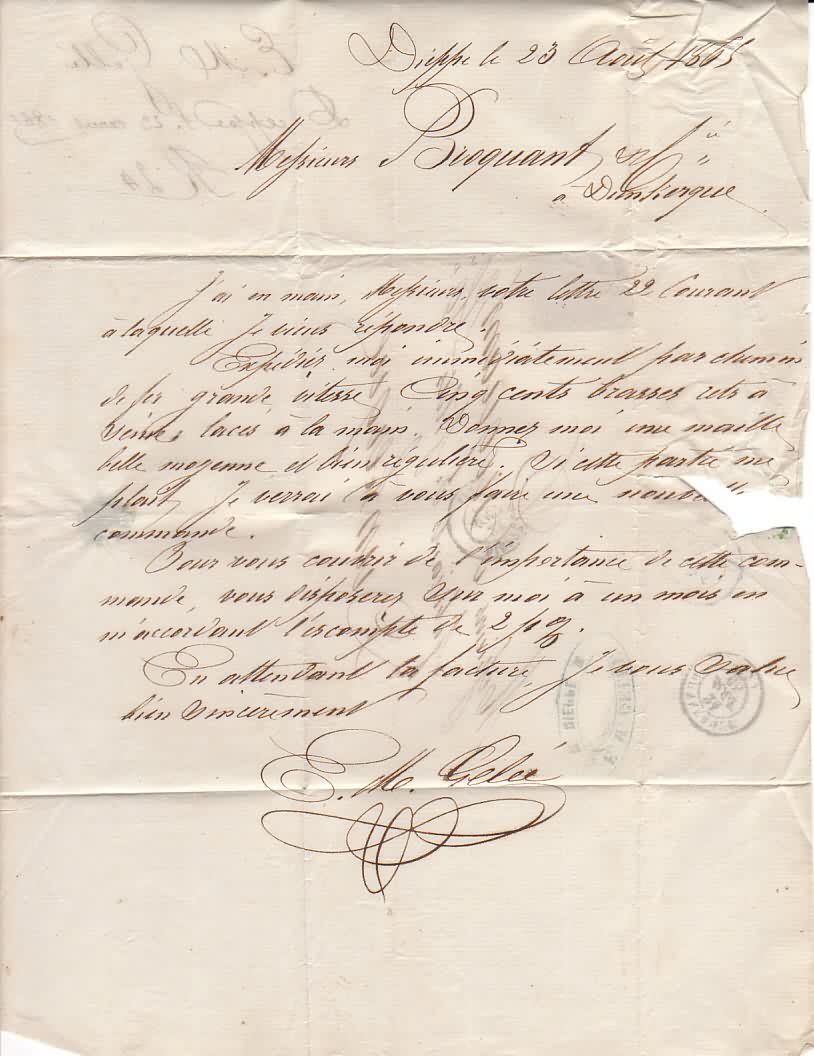 Dieppe le 23 Août 1865
Messieurs Broquant & Cie
à Dunkerque
J'ai en main, Messieurs, votre lettre 22 Courant
à laquelle Je viens répondre.
Expédiez moi immédiatement par chemin
de fer grande vitesse Cinq cents brasses rets à
Seine, lacés à la main. Donnez moi une maille
belle moyenne et bien régulière. Si cette partie me
plait, Je verrai à vous faire une nouvelle
commande.
Pour vous couvrir de l'importance de cette com-
mande, vous disposerez sur moi à un mois en
m'accordant l'escompte de 2 p%.
En attendant la facture, Je vous salue
bien sincèrement
E. M. Gelée
DIEPPE